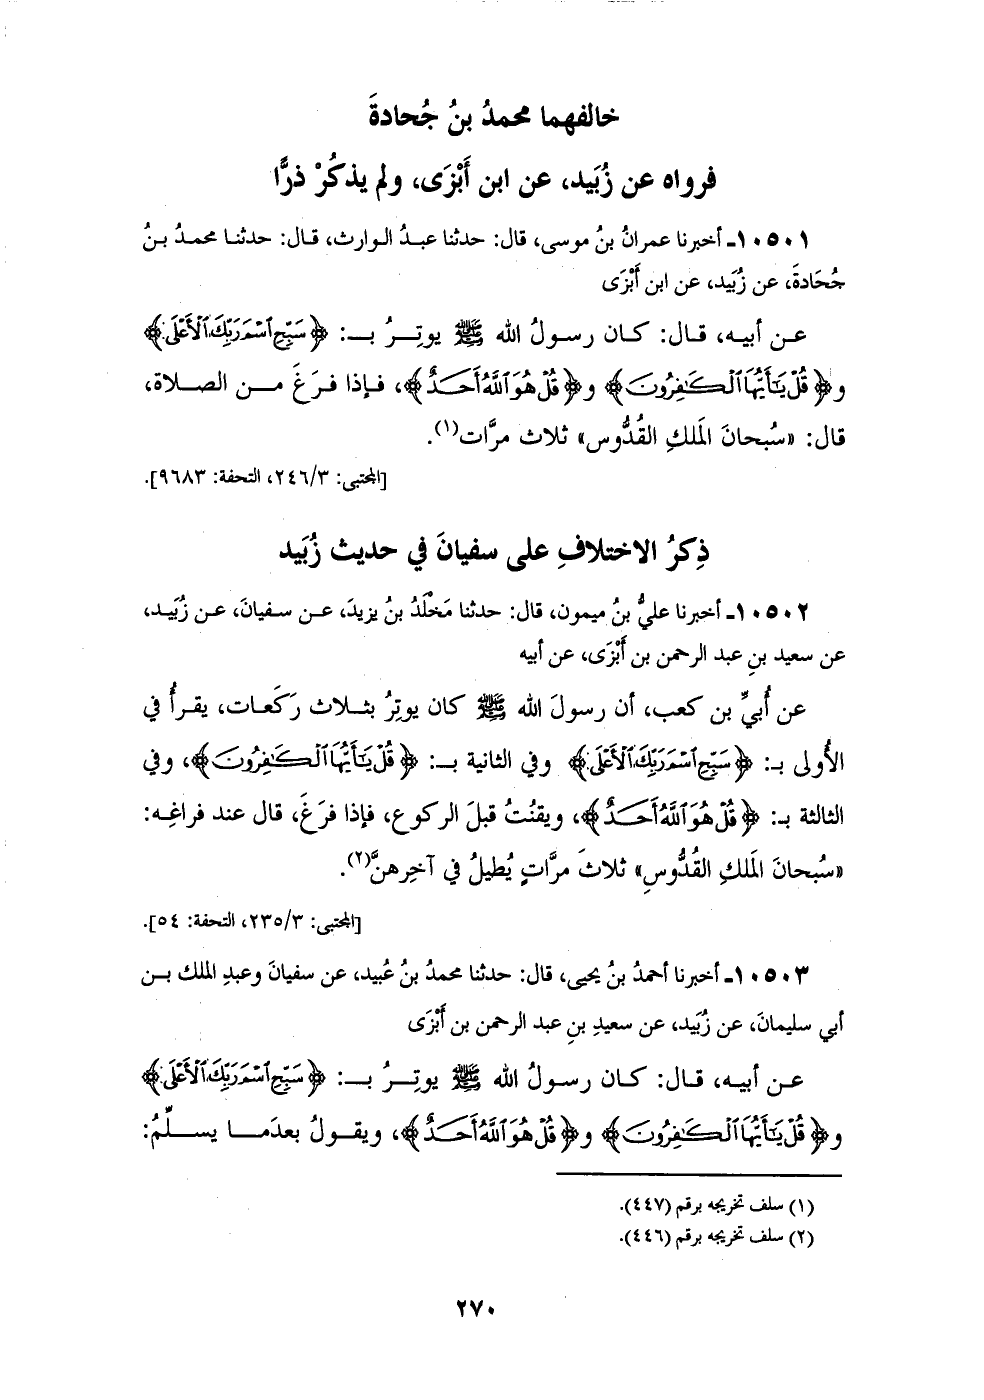 خالفهما محمدُ بنُ جُحادةَ
فرواه عن زُبَيد، عن ابن أَبْزَى، ولم يذكُرْ ذرًّا
١٠٥٠١ـ أخبرنا عمرانُ بنُ موسى، قال: حدثنا عبدُ الوارث، قال: حدثنا محمدُ بنُ
جُحَادةَ، عن زُبَيد، عن ابن أَبْزَى
عن أبيه، قال: كان رسولُ الله ﷺ يوتِرُ بـ: ﴿سَبِّحِ ٱسْمَ رَبِّكَ ٱلْأَعْلَى﴾
و﴿قُلْ يَٰٓأَيُّهَا ٱلْكَٰفِرُونَ﴾ و﴿قُلْ هُوَ ٱللَّهُ أَحَدٌ﴾، فإذا فرَغَ من الصلاة،
قال: «سُبحانَ المَلكِ القُدُّوس» ثلاث مرَّات(١).
[المجتبى: ٢٤٦/٣، التحفة: ٩٦٨٣].
ذِكرُ الاختلافِ على سفيانَ في حديث زُبَيد
١٠٥٠٢ـ أخبرنا عليُّ بنُ ميمون، قال: حدثنا مَخْلَدُ بنُ يزيدَ، عن سفيانَ، عن زُبَيد،
عن سعيد بنِ عبد الرحمن بن أَبْزَى، عن أبيه
عن أُبيِّ بن كعب، أن رسولَ الله ﷺ كان يوتِرُ بثلاث ركَعات، يقرأُ في
الأُولى بـ: ﴿سَبِّحِ ٱسْمَ رَبِّكَ ٱلْأَعْلَى﴾ وفي الثانية بـ: ﴿قُلْ يَٰٓأَيُّهَا ٱلْكَٰفِرُونَ﴾، وفي
الثالثة بـ: ﴿قُلْ هُوَ ٱللَّهُ أَحَدٌ﴾، ويقنُتُ قبلَ الركوع، فإذا فرَغَ، قال عند فراغِه:
«سُبحانَ المَلكِ القُدُّوسِ» ثلاثَ مرَّاتٍ يُطيلُ في آخِرهنَّ(٢).
[المجتبى: ٢٣٥/٣، التحفة: ٥٤].
١٠٥٠٣ـ أخبرنا أحمدُ بنُ يحيى، قال: حدثنا محمدُ بنُ عُبيد، عن سفيانَ وعبدِ الملك بن
أبي سليمانَ، عن زُبَيد، عن سعيدِ بنِ عبد الرحمن بن أَبْزَى
عن أبيه، قال: كان رسولُ الله ﷺ يوتِرُ بـ: ﴿سَبِّحِ ٱسْمَ رَبِّكَ ٱلْأَعْلَى﴾
و﴿قُلْ يَٰٓأَيُّهَا ٱلْكَٰفِرُونَ﴾ و﴿قُلْ هُوَ ٱللَّهُ أَحَدٌ﴾، ويقولُ بعدَما يسلِّمُ:
(١) سلف تخريجه برقم (٤٤٧).
(٢) سلف تخريجه برقم (٤٤٦).
٢٧٠